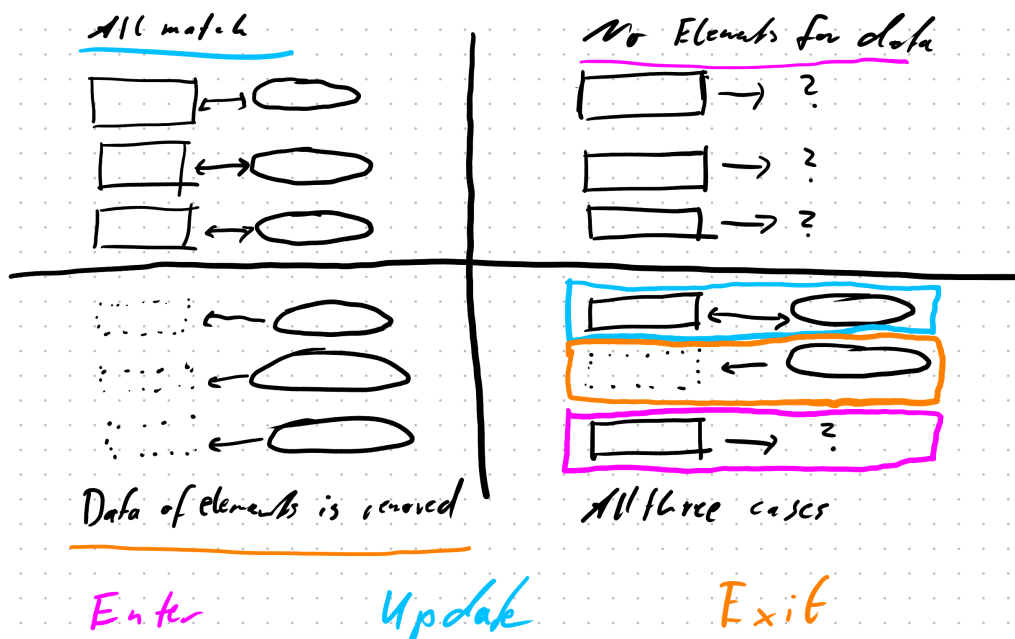 All match
No Elements for data
?
?
?
?
Data of elements is removed
All three cases
Enter Update Exit